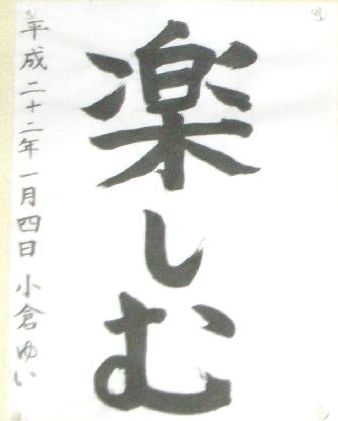 楽しむ
平成二十二年一月四日 小倉ゆい